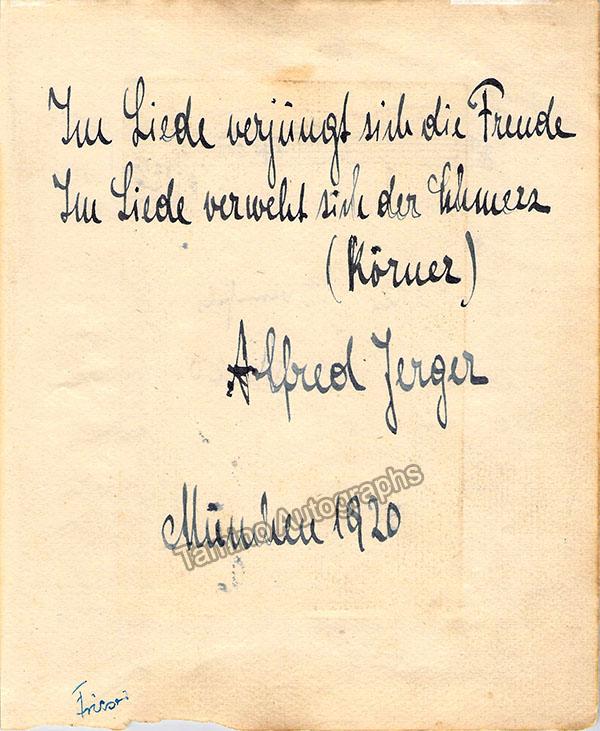 Im Liede verjüngt sich die Freude
Im Liede verweht sich der Schmerz
(Körner)
Alfred Jerger
München 1920
Tamino Autographs